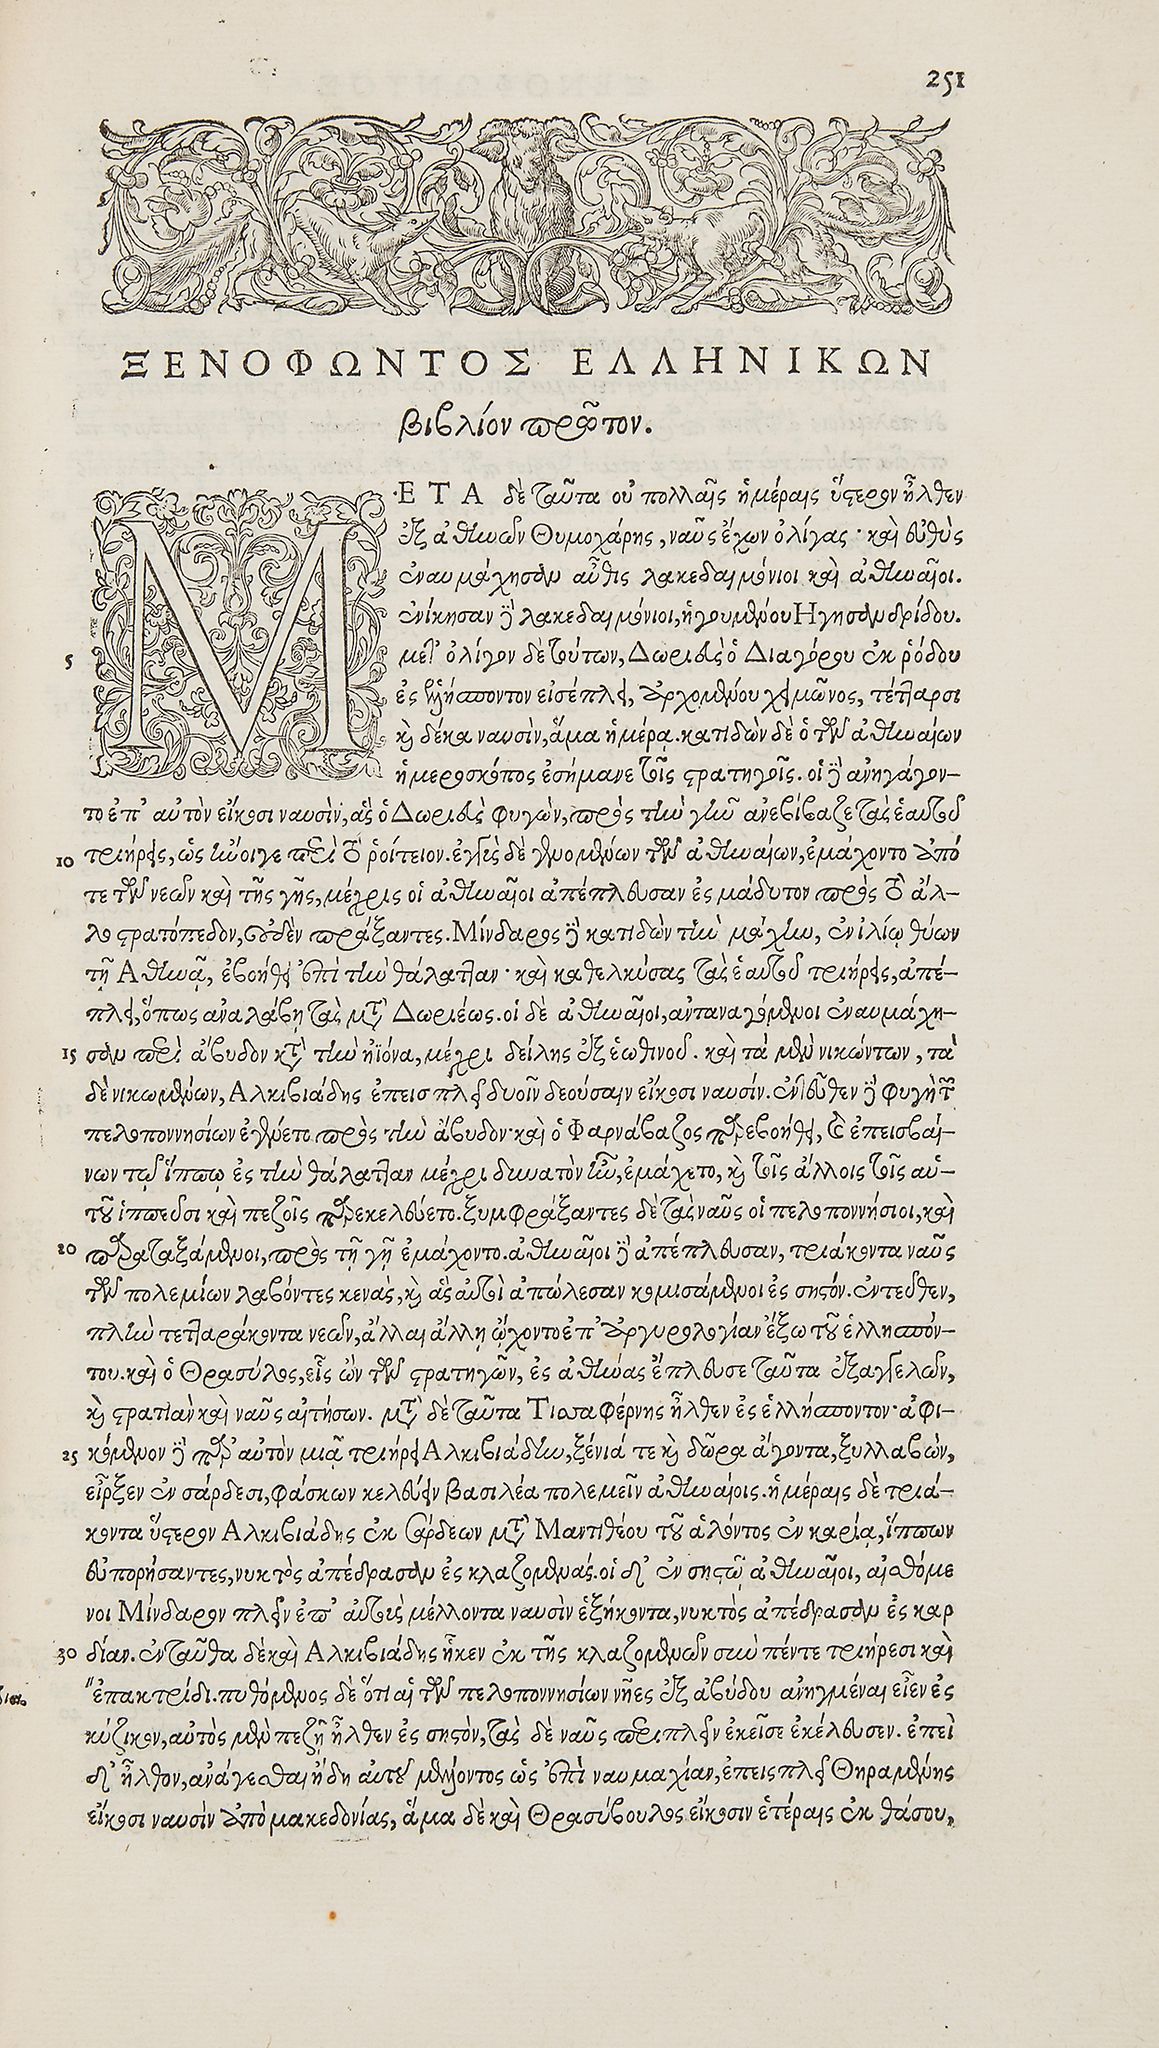 251
ΞΕΝΟΦΩΝΤΟΣ ΕΛΛΗΝΙΚΩΝ
βιβλίον πρῶτον.
ΜΕΤΑ δὲ ταῦτα οὐ πολλαῖς ἡμέραις ὕστερον ἦλθεν
ἐξ ἀθηνῶν Θυμοχάρης, ναῦς ἔχων ὀλίγας· καὶ εὐθὺς
ἐναυμάχησαν αὖθις λακεδαιμόνιοι καὶ ἀθηναῖοι.
ἐνίκησαν δὲ λακεδαιμόνιοι, ἡγουμένου Ηγησανδρίδου.
5 μετ' ὀλίγον δὲ τούτων, Δωριεὺς ὁ Διαγόρου ἐκ ῥόδου
ἐς ἑλλήσποντον εἰσέπλει, ἀρχομένου χειμῶνος, τέτταρσι
καὶ δέκα ναυσὶν, ἅμα ἡμέρᾳ. κατιδὼν δὲ ὁ τῶν ἀθηναίων
ἡμεροσκόπος ἐσήμανε τοῖς στρατηγοῖς. οἱ δὲ ἀνηγάγον-
το ἐπ' αὐτὸν εἴκοσι ναυσὶν, ἃς ὁ Δωριεὺς φυγὼν, πρὸς τὴν γῆν ἀνεβίβαζε τὰς ἑαυτοῦ
10 τριήρεις, ὡς ἤνοιγε περὶ τὸ ῥοίτειον. ἐγγὺς δὲ γενομένων τῶν ἀθηναίων, ἐμάχοντο ἀπό
τε τῶν νεῶν καὶ τῆς γῆς, μέχρις οἱ ἀθηναῖοι ἀπέπλευσαν ἐς μάδυτον πρὸς τὸ ἄλ-
λο στρατόπεδον, οὐδὲν πράξαντες. Μίνδαρος δὲ κατιδὼν τὴν μάχην, ἐν ἰλίῳ θύων
τῇ Αθηνᾷ, ἐβοήθει ἐπὶ τὴν θάλατταν· καὶ καθελκύσας τὰς ἑαυτοῦ τριήρεις, ἀπέ-
πλει, ὅπως ἀναλάβῃ τὰς μετὰ Δωριέως. οἱ δὲ ἀθηναῖοι, ἀνταναγόμενοι ἐναυμάχη-
15 σαν περὶ ἄβυδον κατὰ τὴν ἠϊόνα, μέχρι δείλης ἐξ ἑωθινοῦ. καὶ τὰ μὲν νικώντων, τὰ
δὲ νικωμένων, Αλκιβιάδης ἐπεισπλεῖ δυοῖν δεούσαιν εἴκοσι ναυσίν. ἐντεῦθεν δὲ φυγὴ τῶν
πελοποννησίων ἐγένετο πρὸς τὴν ἄβυδον· καὶ ὁ Φαρνάβαζος παρεβοήθει, καὶ ἐπεισβαί-
νων τῷ ἵππῳ ἐς τὴν θάλατταν μέχρι δυνατὸν ἦν, ἐμάχετο, καὶ τοῖς ἄλλοις τοῖς αὑ-
τοῦ ἱππεῦσι καὶ πεζοῖς παρεκελεύετο. ξυμφράξαντες δὲ τὰς ναῦς οἱ πελοποννήσιοι, καὶ
20 παραταξάμενοι, πρὸς τῇ γῇ ἐμάχοντο. ἀθηναῖοι δὲ ἀπέπλευσαν, τριάκοντα ναῦς
τῶν πολεμίων λαβόντες κενὰς, καὶ ἃς αὐτοὶ ἀπώλεσαν κομισάμενοι ἐς σηστόν. ἐντεῦθεν,
πλὴν τετταράκοντα νεῶν, ἄλλαι ἄλλῃ ᾤχοντο ἐπ' ἀργυρολογίαν ἔξω τοῦ ἑλλησπόν-
του. καὶ ὁ Θρασύλος, εἷς ὢν τῶν στρατηγῶν, ἐς ἀθήνας ἔπλευσε ταῦτα ἐξαγγελῶν,
καὶ στρατιὰν καὶ ναῦς αἰτήσων. μετὰ δὲ ταῦτα Τισσαφέρνης ἦλθεν ἐς ἑλλήσποντον· ἀφι-
25 κόμενον δὲ παρ' αὐτὸν μιᾷ τριήρει Αλκιβιάδην, ξένιά τε καὶ δῶρα ἄγοντα, ξυλλαβὼν,
εἶρξεν ἐν σάρδεσι, φάσκων κελεύειν βασιλέα πολεμεῖν ἀθηναίοις. ἡμέραις δὲ τριά-
κοντα ὕστερον Αλκιβιάδης ἐκ σάρδεων μετὰ Μαντιθέου τοῦ ἁλόντος ἐν καρίᾳ, ἵππων
εὐπορήσαντες, νυκτὸς ἀπέδρασαν ἐς κλαζομενάς. οἱ δ' ἐν σηστῷ ἀθηναῖοι, αἰσθόμε
νοι Μίνδαρον πλεῖν ἐπ' αὐτοὺς μέλλοντα ναυσὶν ἑξήκοντα, νυκτὸς ἀπέδρασαν ἐς καρ
30 δίαν. ἐνταῦθα δὲ καὶ Αλκιβιάδης ἧκεν ἐκ τῆς κλαζομενῶν σὺν πέντε τριήρεσι καὶ
"ἐπακτρίδι. πυθόμενος δὲ ὅτι αἱ τῶν πελοποννησίων νῆες ἐξ ἀβύδου ἀνηγμέναι εἶεν ἐς
κύζικον, αὐτὸς μὲν πεζῇ ἦλθεν ἐς σηστὸν, τὰς δὲ ναῦς περιπλεῖν ἐκεῖσε ἐκέλευσεν. ἐπεὶ
δ' ἦλθον, ἀνάγεσθαι ἤδη αὐτοῦ μέλλοντος ὡς ἐπὶ ναυμαχίαν, ἐπεισπλεῖ Θηραμένης
εἴκοσι ναυσὶν ἀπὸ μακεδονίας, ἅμα δὲ καὶ Θρασύβουλος εἴκοσιν ἑτέραις ἐκ θάσου,